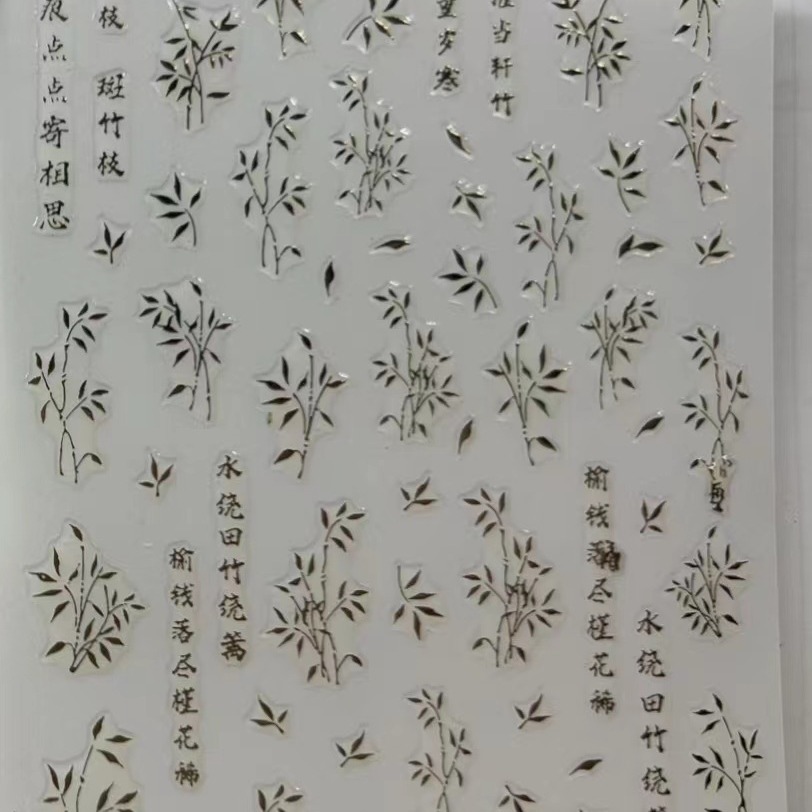 当轩竹
重岁寒
枝 斑竹枝
痕点点寄相思
水绕田竹绕
榆钱落尽槿花稀
水绕田竹绕篱
榆钱落尽槿花稀